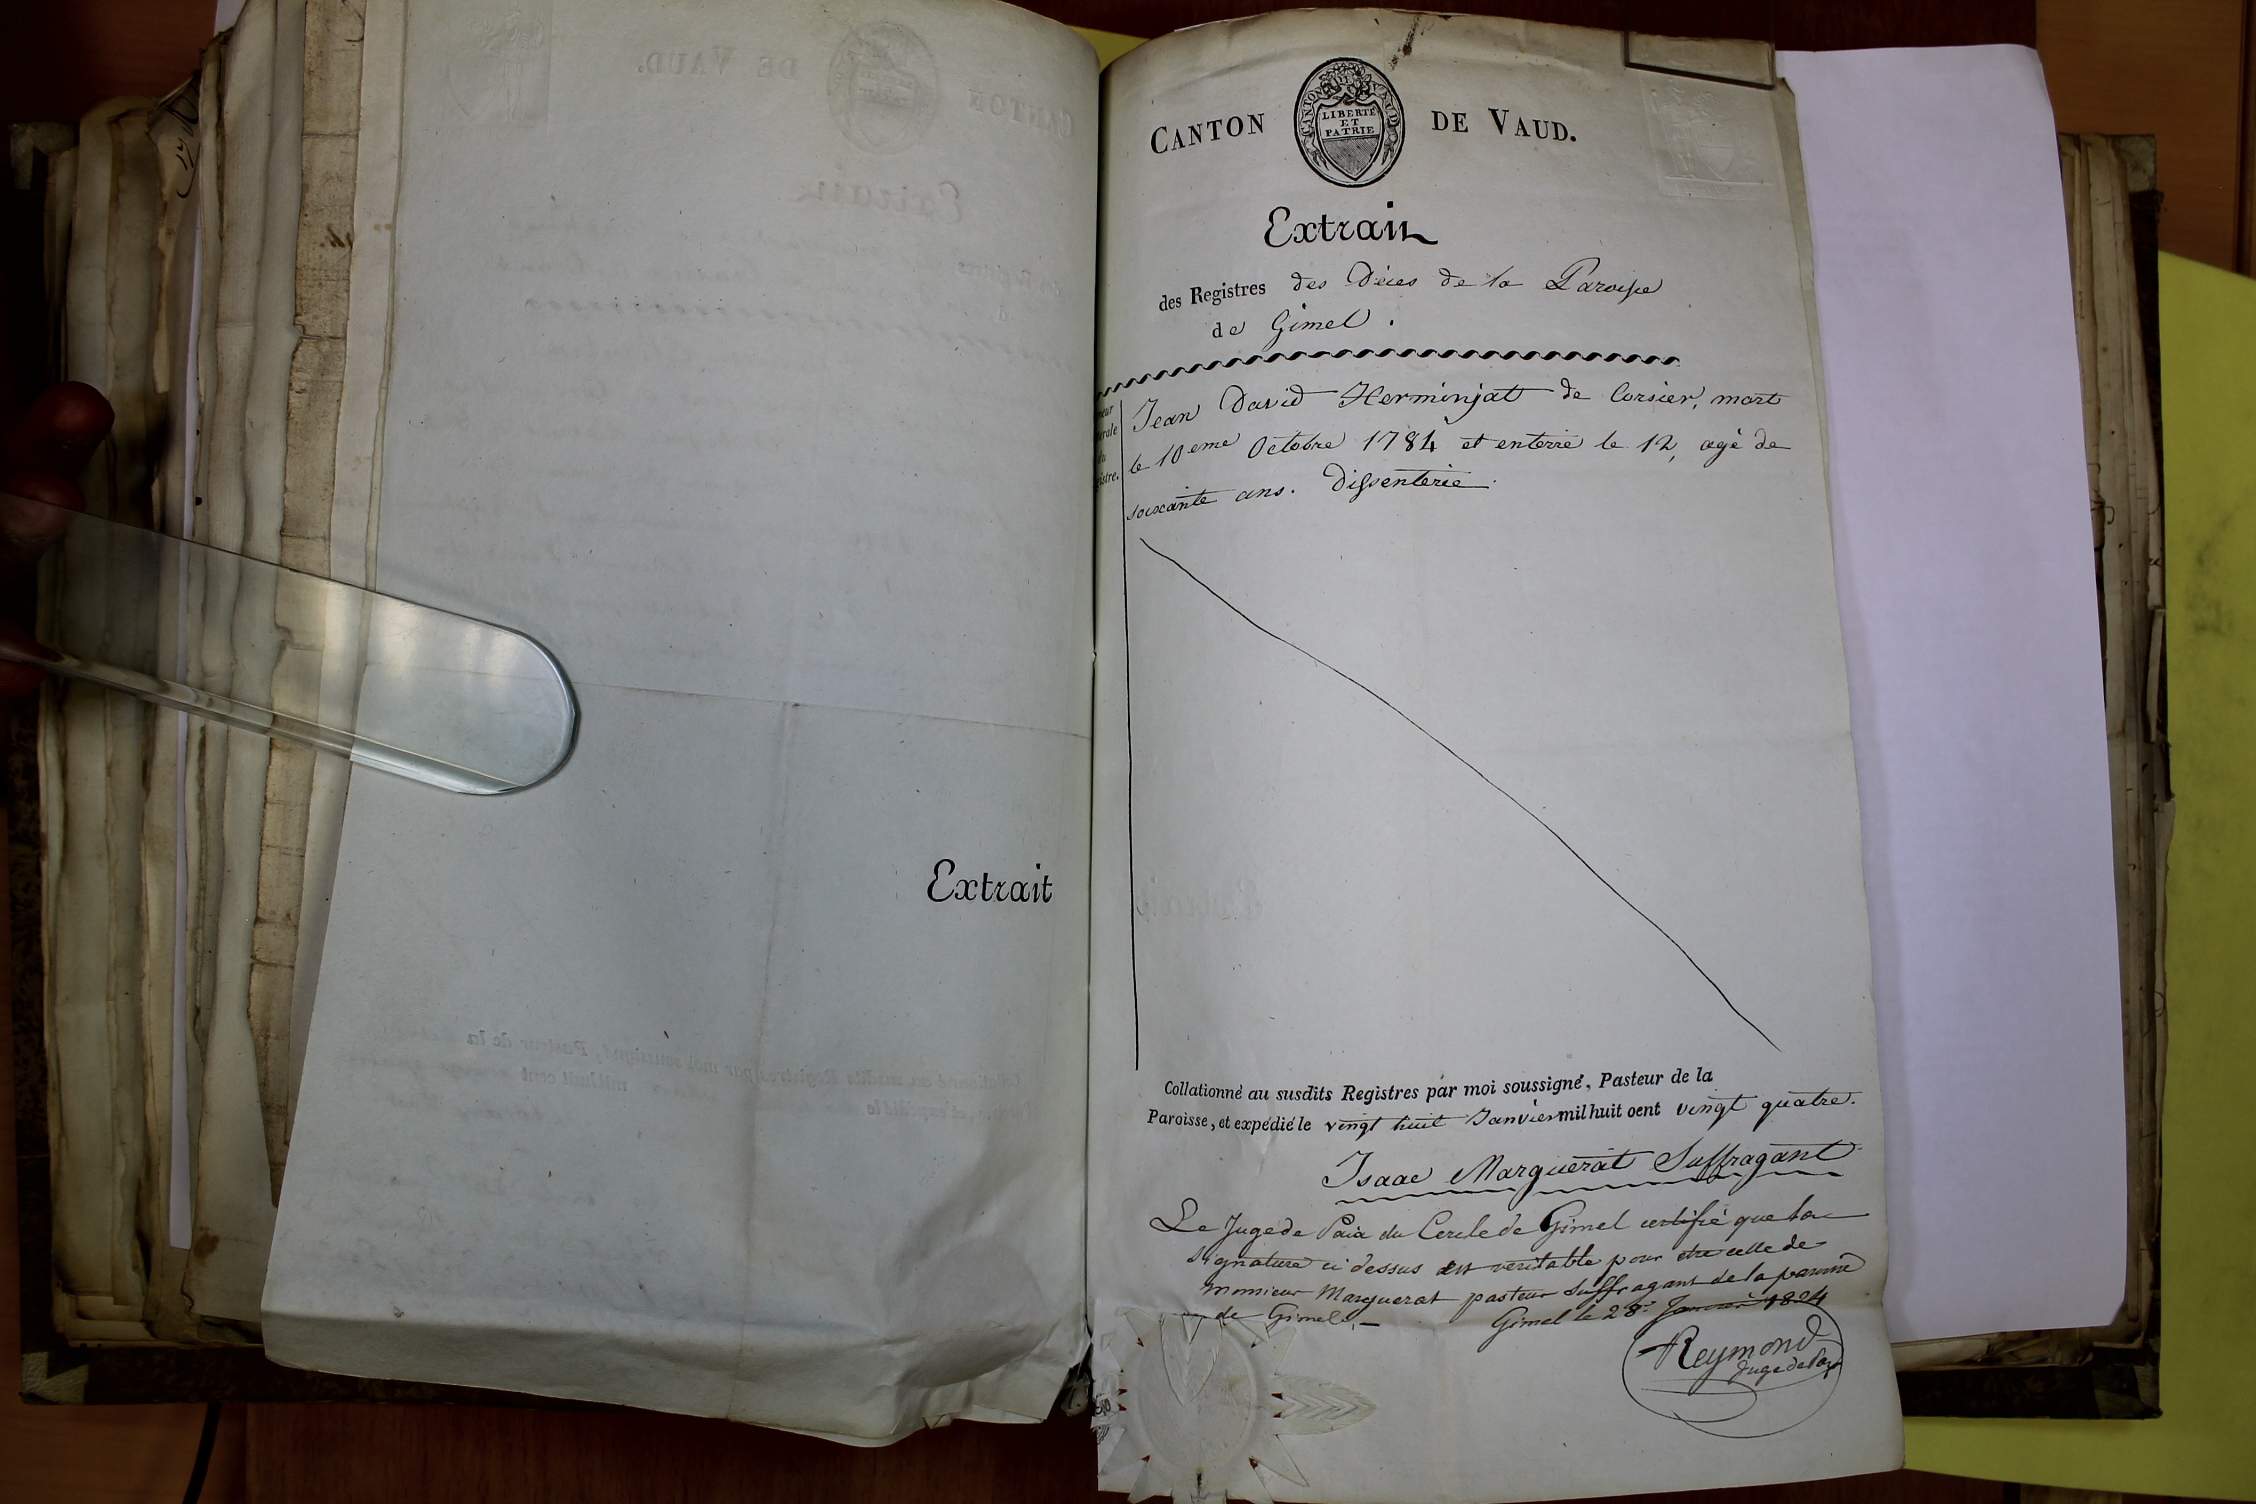 Extrait
CANTON DE VAUD.
CANTON DE VAUD
LIBERTÉ
ET
PATRIE
Extrait
des Registres des Décès de la Paroisse
de Gimel.
Jean David Herminjat de Corsier, mort
le 10eme Octobre 1784 et enterré le 12, agé de
soixante ans. Dissenterie.
Collationné au susdits Registres par moi soussigné, Pasteur de la
Paroisse, et expédié le vingt huit Janvier mil huit cent vingt quatre.
Isaac Marguerat Suffragant
Le Juge de Paix du Cercle de Gimel certifie que la
signature ci dessus est veritable pour etre celle de
monsieur Marguerat pasteur suffragant de la paroisse
de Gimel.
Gimel le 28e Janvier 1824
Reymond
Juge de Paix